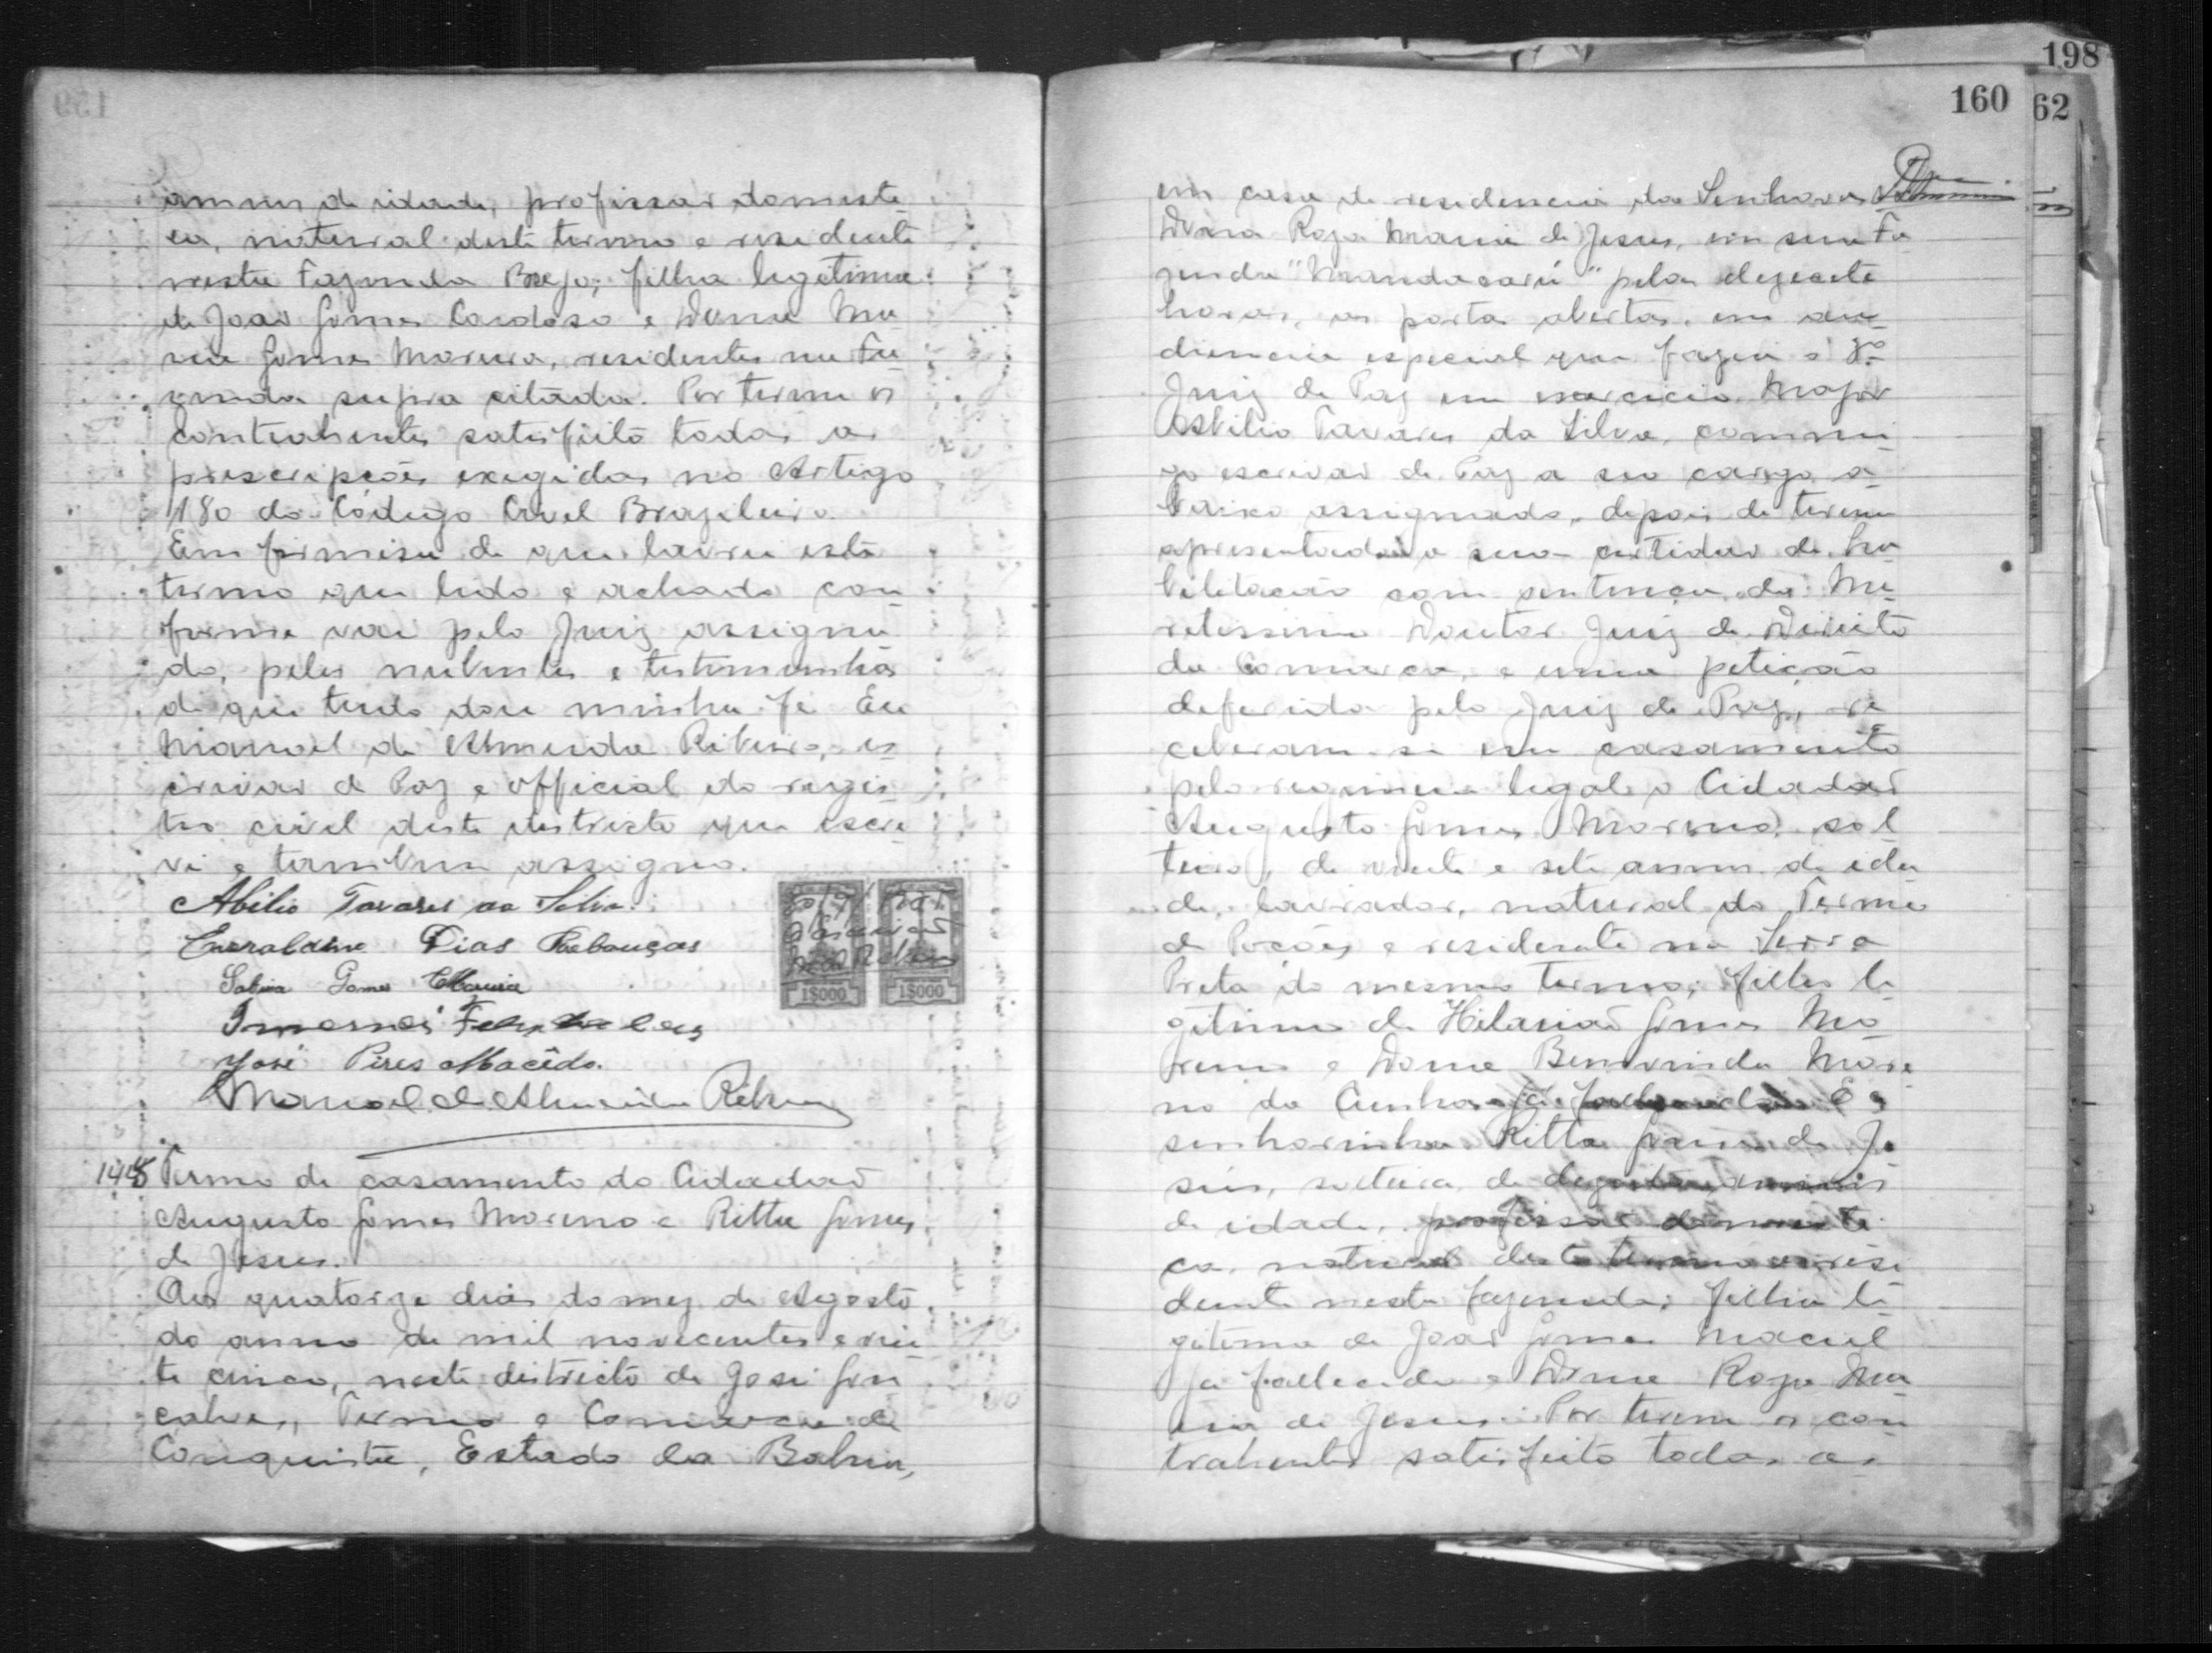 annos de idade, profissão domesti
ca, natural deste termo e residente
nesta Fazenda Brejo, filha legitima
de João Gomes Cardoso e Dona Ma
ria Gomes Moreira, residentes na Fa
zenda supra citada. Por terem os
contrahentes satisfeito todas as
prescripções exegidas no Artigo
180 do Código Civel Brazileiro.
Em firmisa de que lavrei este
termo que lido e achado con
forme vae pelo Juiz assigna
do, pelos nubentes e testemunhas
de que tudo dou minha fé. Eu
Manoel de Almeida Ribeiro, es
crivão de Paz e official do regis
tro civel deste districto que escre
vi e tambem assigno.
Abilio Tavares da Silva
Dias Rebouças
Gomes Moreira
José Pires Macêdo.
Manoel de Almeida Ribeiro
1$000 1$000
1448 Termo de casamento do Cidadão
Augusto Gomes Moreno e Ritta Gomes
de Jesus.
Aos quatorze dias do mez de Agosto
do anno de mil novecentos e vin
te cinco, neste districto de José Gon
calves, Termo e Comarca de
Conquista, Estado da Bahia,
198
160 62
em casa de residencia da Senhora
Dona Roza Maria de Jesus, em sua Fa
zenda "Mandacarú" pelas dezecete
horas, as portas abertas, em au
diencia especial que fazia o 3º
Juiz de Paz em exercicio Major
Abilio Tavares da Silva, commi
go escrivão de Paz a seo cargo a
baixo assignado, depois de terem
apresentado a sua certidão de ha
bilitacão com sentença do Me
retissimo Doutor Juiz de Direito
da Comarca, e uma petição
deferida pelo Juiz de Paz, re
ceberam-se em casamento
pelo regimen legal o Cidadão
Augusto Gomes Moreno, sol
teiro, de vinte e sete annos de ida
de, lavrador, natural do Termo
de Poções e residente na Serra
Preta do mesmo termo, filho le
gitimo de Hilarião Gomes Mo
reno e Dona Bemvinda More
no da Cunha já E a
senhorinha Ritta Gomes de Je
sus, solteira, de annos
de idade, profissão domesti
ca, natural deste termo e resi
dente nesta fazenda, filha le
gitima de João Gomes Maciel
já fallecido e Dona Roza Ma
ria de Jesus. Por terem os con
trahentes satisfeito todas as